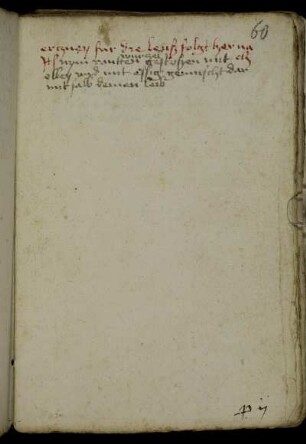 60
ertzney für die leuß folgt her na
Its nym rautten wurtzel gestossen mit
ölley vnd mit essig gemischt dar
mit salb deinen leib
p ij